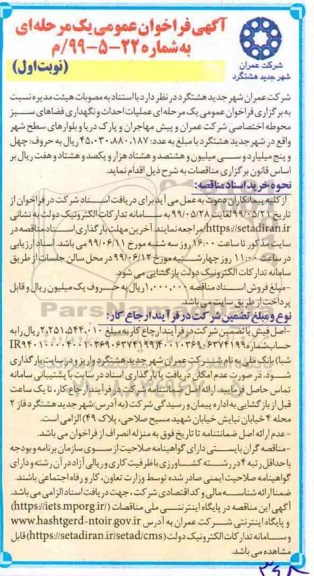 آگهی فراخوان عمومی یک مرحله‌ای
به شماره ۲۲-۵-۹۹/م
(نوبت اول)
شرکت عمران
شهر جدید هشتگرد
شرکت عمران شهر جدید هشتگرد در نظر دارد با استناد به مصوبات هیئت مدیره نسبت
به برگزاری فراخوان عمومی یک مرحله‌ای عملیات احداث و نگهداری فضاهای سبز
محوطه اختصاصی شرکت عمران و پیش مهاجران و پارک دریا و بلوارهای سطح شهر
واقع در شهر جدید هشتگرد با مبلغ به عدد: ۴۵.۰۳۰.۸۸۰.۱۸۷ ریال به حروف: چهل
و پنج میلیارد و سی میلیون و هشتصد و هشتاد هزار و یکصد و هشتاد و هفت ریال بر
اساس قانون برگزاری مناقصات به شرح ذیل اقدام نماید.
نحوه خرید اسناد مناقصه:
از کلیه پیمانکاران دعوت به عمل می آید برای دریافت اسناد شرکت در فراخوان از
تاریخ ۹۹/۰۵/۲۱ لغایت ۹۹/۰۵/۲۸ به سامانه تدارکات الکترونیک دولت به نشانی
https://setadiran.ir مراجعه نمایند. آخرین مهلت بارگذاری اسناد مناقصه در
سایت مذکور تا ساعت ۱۶:۰۰ روز سه شنبه مورخ ۹۹/۰۶/۱۱ می باشد. اسناد ارزیابی
در ساعت ۱۱:۰۰ روز چهارشنبه مورخ ۹۹/۰۶/۱۲ در محل سالن جلسات از طریق
سامانه تدارکات الکترونیک دولت بازگشایی می شود.
-مبلغ فروش اسناد مناقصه ۱.۰۰۰.۰۰۰ ریال به حروف یک میلیون ریال و قابل
پرداخت از طریق سایت می باشد.
نوع و مبلغ تضمین شرکت در فرآیند ارجاع کار:
-اصل فیش یا تضمین شرکت در فرآیند ارجاع کار به مبلغ ۲.۲۵۱.۵۴۴.۰۱۰ ریال را به
شبا) بانک ملی به نام شرکت عمران شهر جدید هشتگرد واریز و در سایت بارگذاری
شود. در صورت عدم امکان دریافت یا بارگذاری اسناد در سایت با پشتیبانی سامانه
تماس حاصل فرمایید. ارائه اصل ضمانتنامه شرکت در فرآیند ارجاع کار، تا یک ساعت
قبل از بازگشایی به اداره پیمان و رسیدگی شرکت (به آدرس: شهر جدید هشتگرد فاز ۲
محله ۴ خیابان نیایش خیابان شهید مسیح صلاحی، پلاک ۴۹) الزامی است.
-عدم ارائه اصل ضمانتنامه تا تاریخ فوق به منزله انصراف از فراخوان می باشد.
-مناقصه گران بایستی دارای گواهینامه صلاحیت از سوی سازمان برنامه و بودجه
با حداقل رتبه ۴ در رشته کشاورزی با ظرفیت کاری و ریالی آزاد در آن رشته و دارای
گواهینامه صلاحیت ایمنی صادر شده توسط وزارت تعاون، کار و رفاه اجتماعی باشند.
ضمنا ارائه شناسه ملی و کد اقتصادی شرکت، جهت دریافت اسناد الزامی می باشد.
آگهی این مناقصه در پایگاه اینترنتی ملی مناقصات (https://iets.mporg.ir/)
و پایگاه اینترنتی شرکت عمران به آدرس www.hashtgerd-ntoir.gov.ir
و سامانه تدارکات الکترونیک دولت (https://setadiran.ir/setad/cms) قابل
مشاهده می باشد.